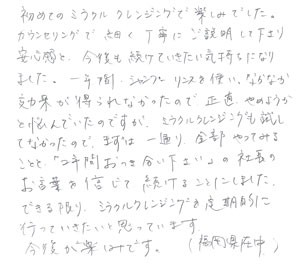 初めてのミラクルクレンジングで楽しみでした。
カウンセリングで細く丁寧にご説明して下さり
安心感と、今後も続けていきたい気持ちになり
ました。一年間、シャンプーリンスを使い、なかなか
効果が得られなかったので正直やめようか
と悩んでいたのですが、ミラクルクレンジングも試し
てなかったので、まずは一通り、全部やってみる
ことと、「2年間おつき合い下さい」の社長の
お言葉を信じて続けることにしました。
できる限り、ミラクルクレンジングを定期的に
行っていきたいと思っています。
今後が楽しみです。 (福岡県在中)